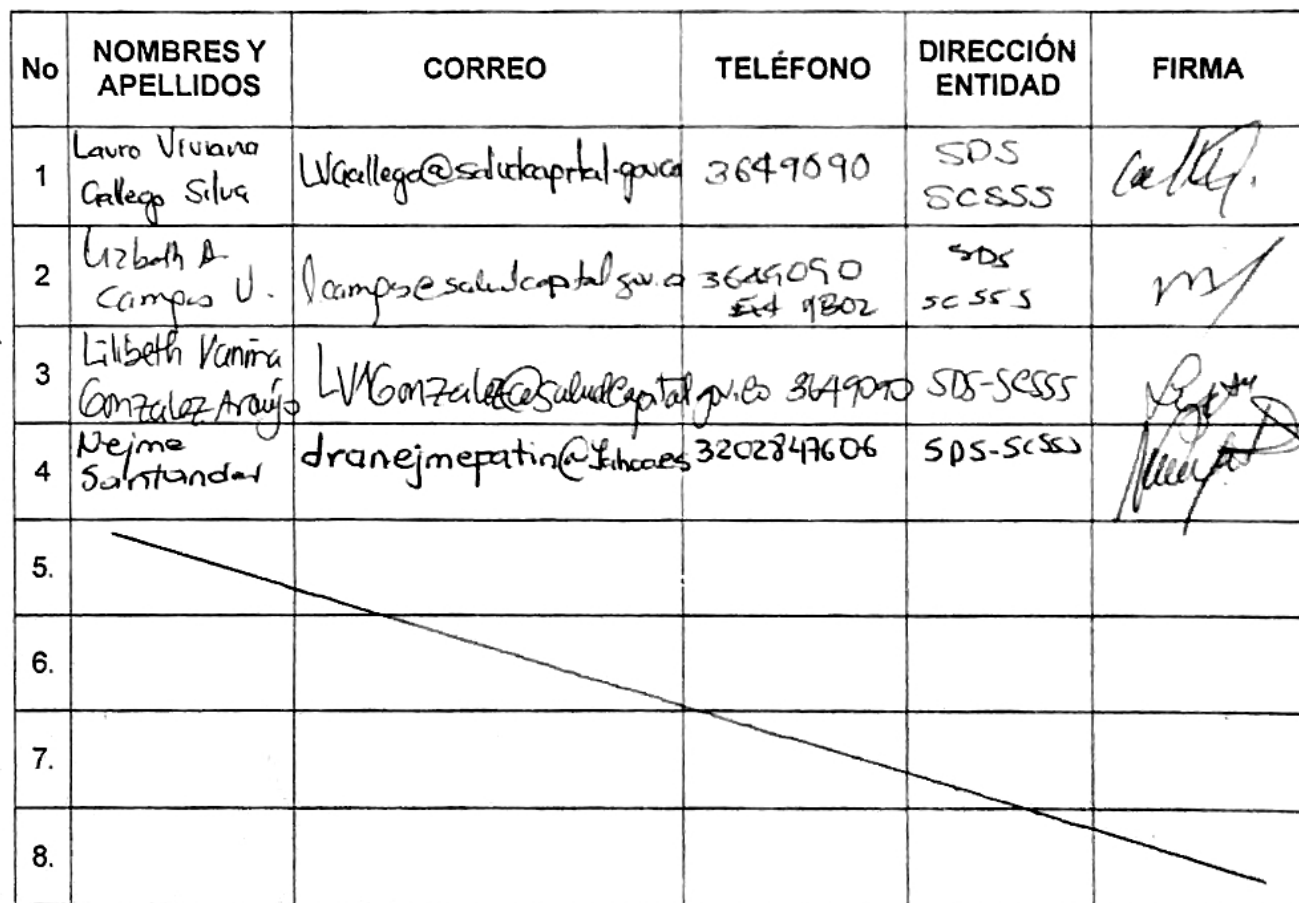 No NOMBRES Y APELLIDOS CORREO TELÉFONO DIRECCIÓN ENTIDAD FIRMA
1 Laura Viviana Gallego Silva LVGallego@saludcapital.gov.co 3649090 SDS SCSSS
2 Lizbeth A. Campos U. lcampos@saludcapital.gov.co 3649090 Ext 9802 SDS SCSSS
3 Lilibeth Vanina Gonzalez Araujo LVGonzalez@saludcapital.gov.co 3649090 SDS-SCSSS
4 Nejme Santander dranejmepatin@Yahoo.es 3202847606 SDS-SCSSS
5.
6.
7.
8.